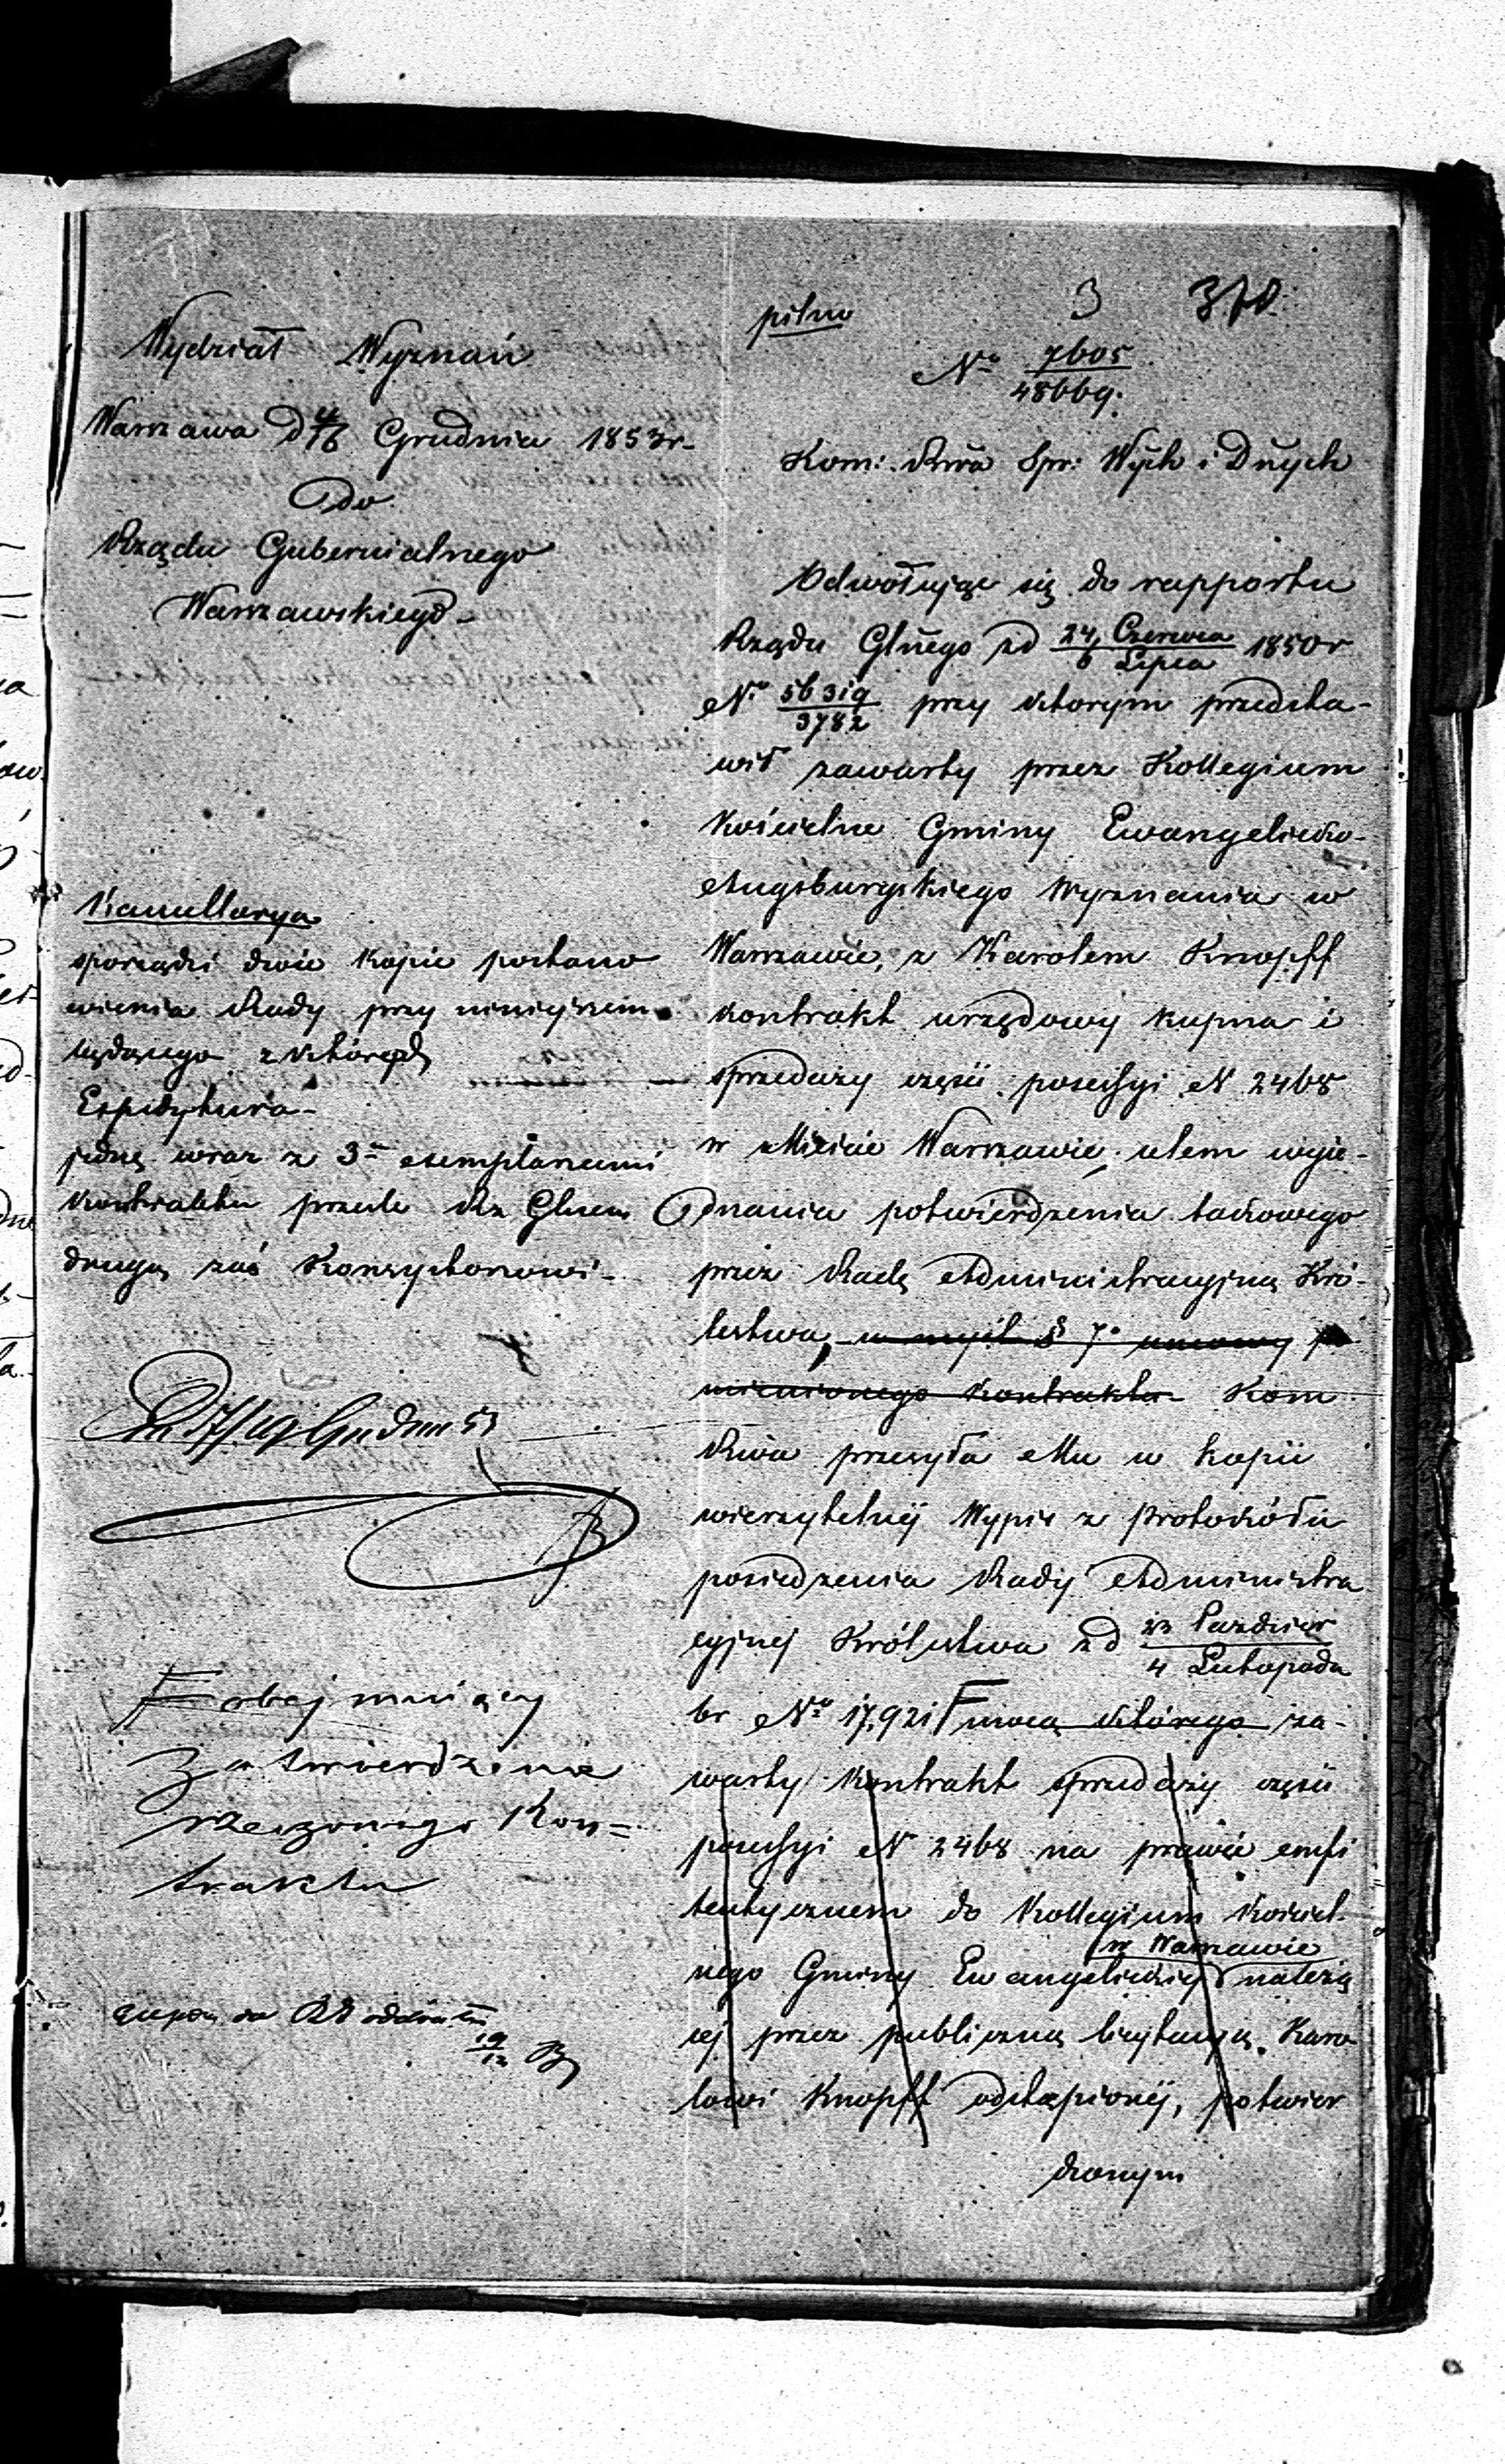 3 370
pilno
Wydział Wyznań
Nº 7605/48669.
Warszawa d 4/16 Grudnia 1853 r.
do
Rządu Gubernialnego
Warszawskiego
Kancellarya
sporządzi dwie kopie postano
wienia Rady przy niniejszem
będącego z których
Expedytura
jedną wraz z 3ma exemplarzami
kontraktu prześle Rz Glnem
drugą zaś Konsystorowi
Grudnia 53
obejmujący
Zatwierdzenie
rzeczonego Kon=
traktu
19/12
Kom: Rwa Spr: Wych i Dnych
Odwołując się do rapportu
Rządu Glnego z d 24 Czerwca/6 Lipca 1850 r
Nº 56319/3782 przy którym przedsta-
wił zawarty przez Kollegium
Kościelne Gminy Ewangelicko-
Augsburgskiego Wyznania w
Warszawie, z Karolem Knopff
kontrakt urzędowy kupna i
sprzedaży części possessyi N 2468
w Mieście Warszawie, celem wyje-
dnania potwierdzenia takowego
przez Radę Administracyjną Kró-
lestwa, w myśl § 7º umowy po
mienionego kontraktu Kom
Rwa przesyła Mu w kopii
wierzytelnej Wypis z protokółu
posiedzenia Rady Administra
cyjnej Królestwa z d 23 Paździer/4 Listopada
br Nº 17,921 mocą którego za-
warty kontrakt sprzedaży części
possessyi N 2468 na prawie emfi
teutycznem do Kollegium Kościel-
w Warszawie
nego Gminy Ewangelickiej należą
cej przez publiczną licytacyą Karo
lowi Knopff odstąpionej, potwier
dzonym